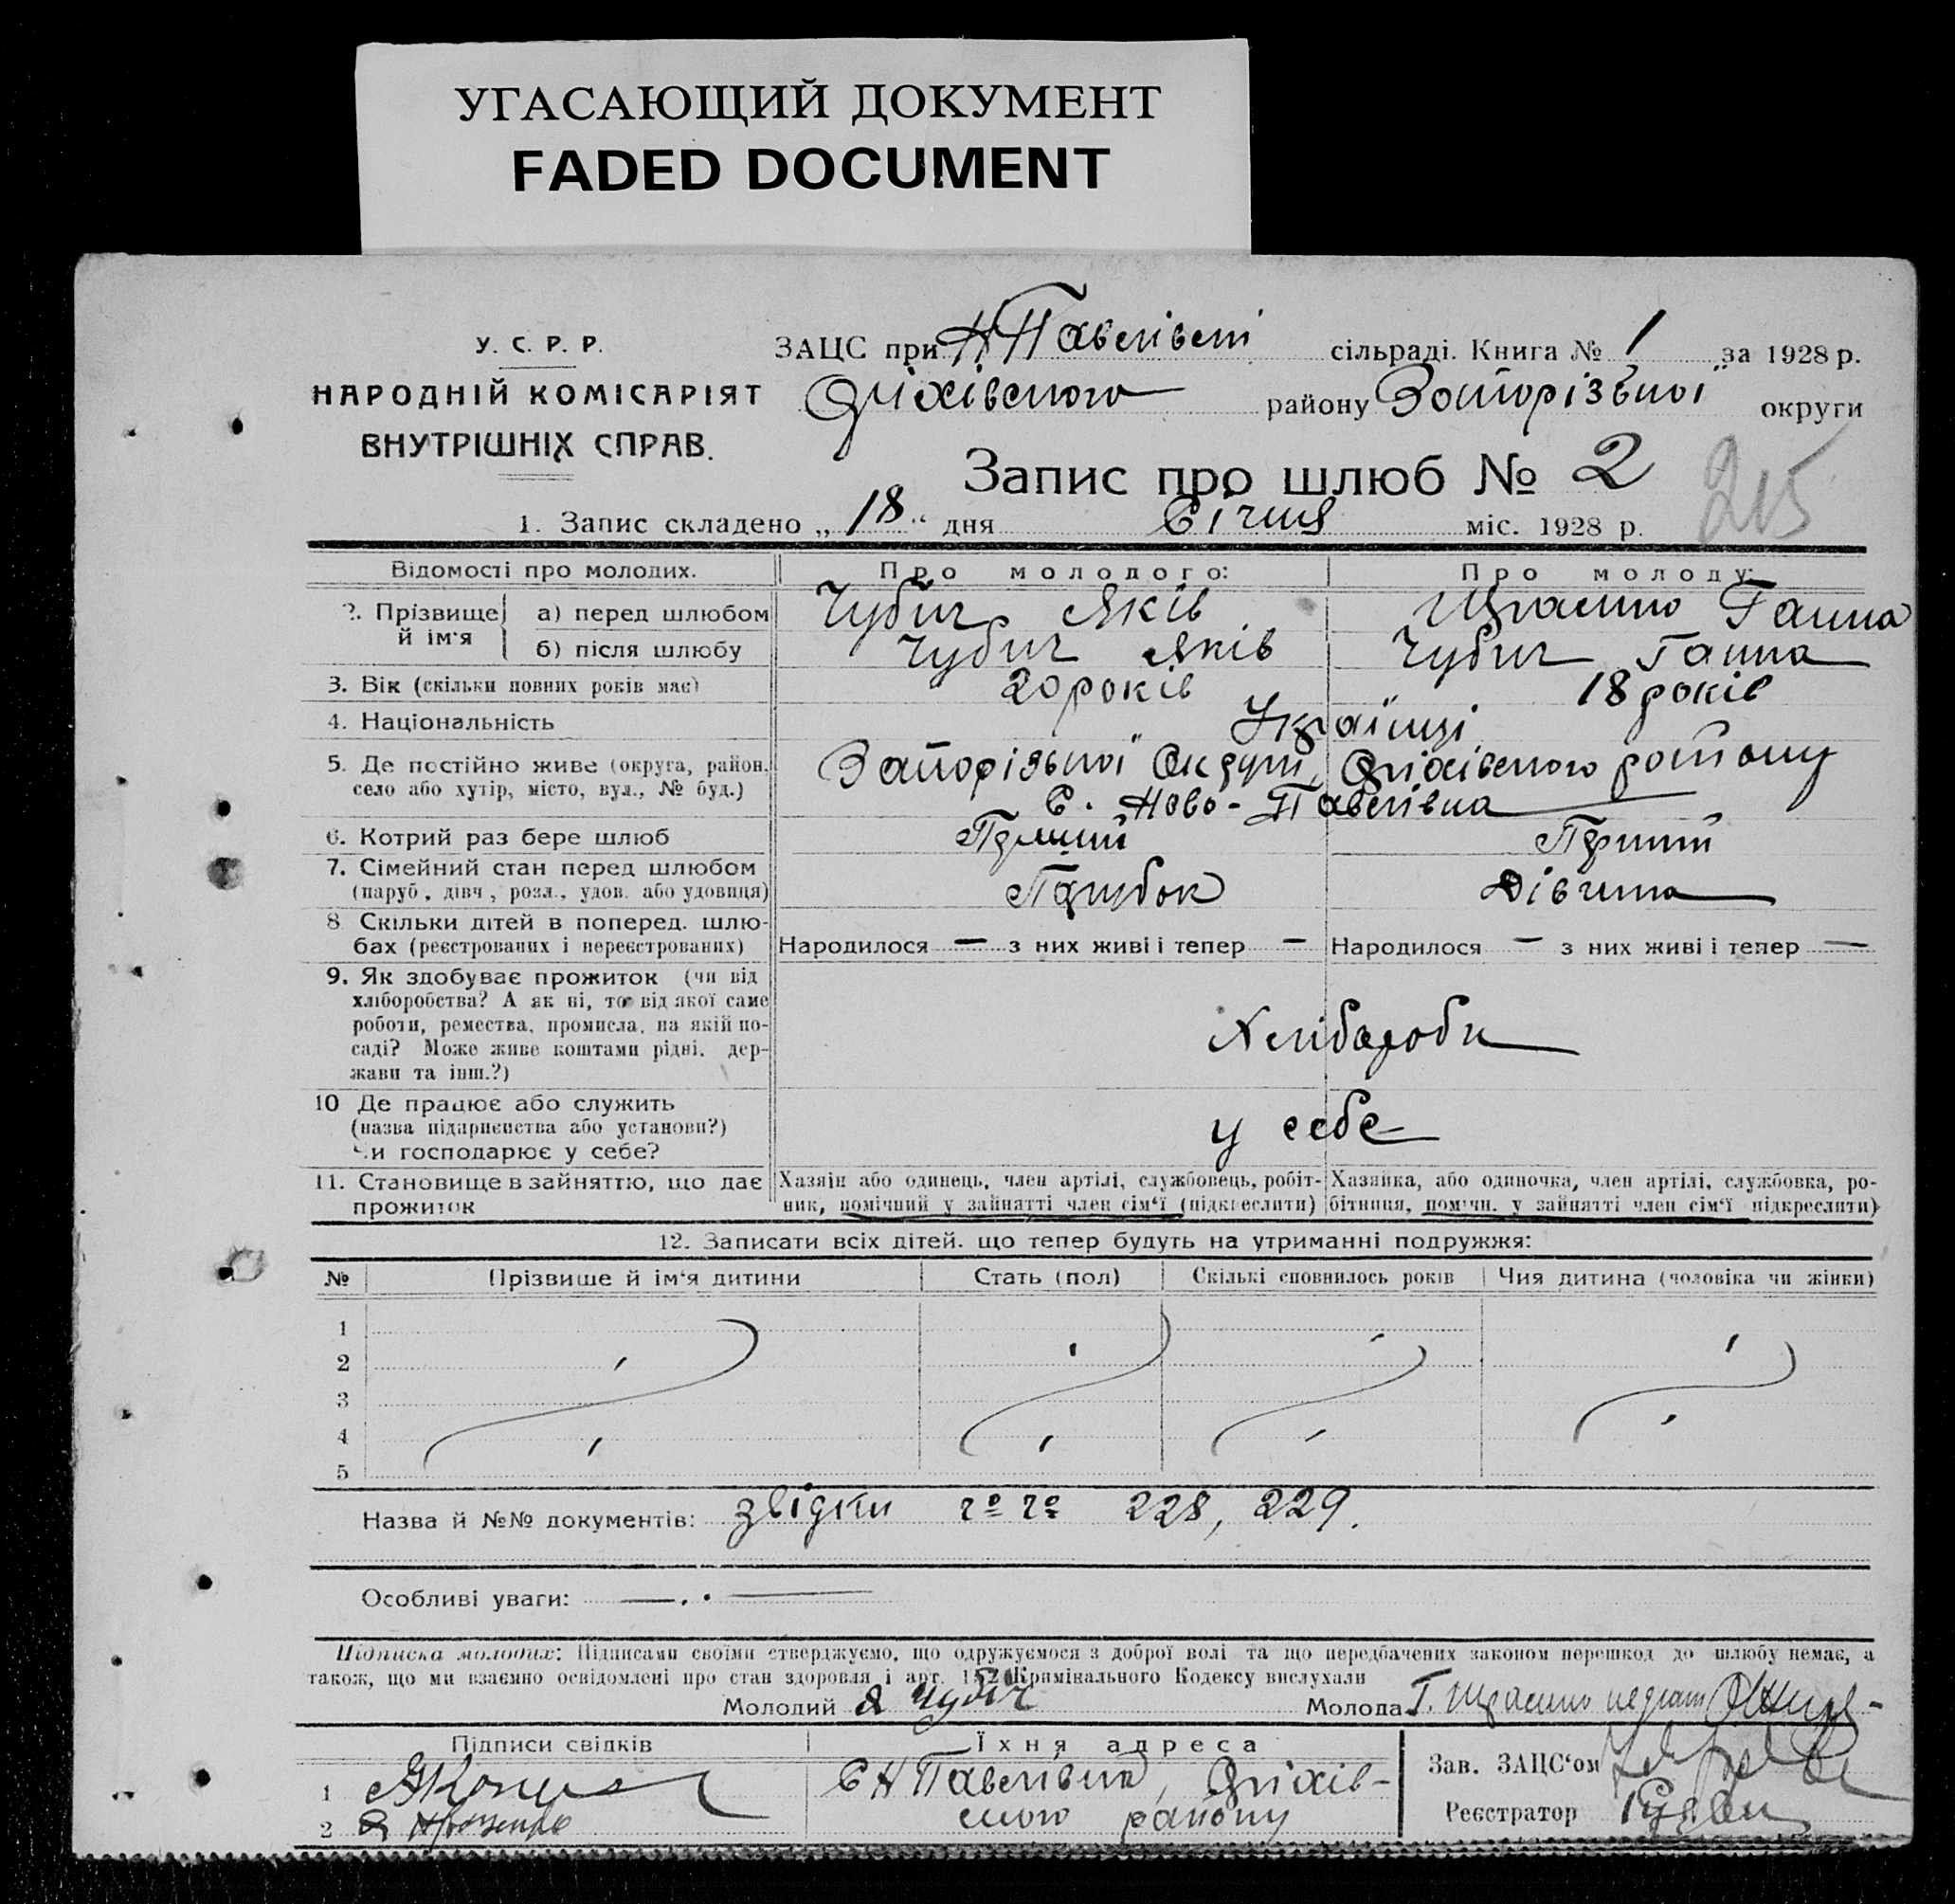 УГАСАЮЩИЙ ДОКУМЕНТ
FADED DOCUMENT
У. С. Р. Р.
НАРОДНІЙ КОМІСАРІЯТ
ВНУТРІШНІХ СПРАВ.
ЗАЦС при Н Павлівскі сільраді. Книга № 1 за 1928 р.
Оріхівського району Запорізької округи
Запис про шлюб № 2
215
1. Запис складено „ 18 “ дня Січня міс. 1928 р.
Відомості про молодих. Про молодого: Про молоду:
2. Прізвище й ім'я а) перед шлюбом Чубич Яків Ганна
б) після шлюбу Чубич Яків Чубич Ганна
3. Вік (скільки повних років має) 20 років 18 років
4. Національність Українці
5. Де постійно живе (округа, район, Запорізької Округи, Оріхівського району
село або хутір, місто, вул., № буд.) С. Ново-Павлівка
6. Котрий раз бере шлюб Перший Перший
7. Сімейний стан перед шлюбом Парубок Дівчина
(паруб., дівч., розл., удов. або удовиця)
8 Скільки дітей в поперед. шлю-
бах (реєстрованих і нереєстрованих) Народилося — з них живі і тепер — Народилося — з них живі і тепер —
9. Як здобуває прожиток (чи від
хліборобства? А як ні, то від якої саме
роботи, ремества, промисла, на якій по-
саді? Може живе коштами рідні, дер-
жави та інш.?) Хлібороби
10 Де працює або служить
(назва підприємства або установи?) у себе
Чи господарює у себе?
11. Становище в зайняттю, що дає прожиток
Хазяїн або одинець, член артілі, службовець, робіт-
ник, помічний у зайнятті член сім'ї (підкреслити)
Хазяйка, або одиночка, член артілі, службовка, ро-
бітниця, помічн. у зайнятті член сім'ї підкреслити)
12. Записати всіх дітей, що тепер будуть на утриманні подружжя:
№ Прізвище й ім'я дитини Стать (пол) Скількі сповнилось років Чия дитина (чоловіка чи жінки)
1
2
3
4
5
Назва й №№ документів: звідки 228, 229.
Особливі уваги: —
Підписка молодих: Підписами своїми стверджуємо, що одружуємося з доброї волі та що передбачених законом перешкод до шлюбу немає, а
також, що ми взаємно освідомлені про стан здоровля і арт. Крімінального Кодексу вислухали
Молодий Я Чубіч Молода Г.
Підписи свідків Їхня адреса
1 С Н Павлівка, Оріхів-
2 ського району
Зав. ЗАЦС'ом
Реєстратор